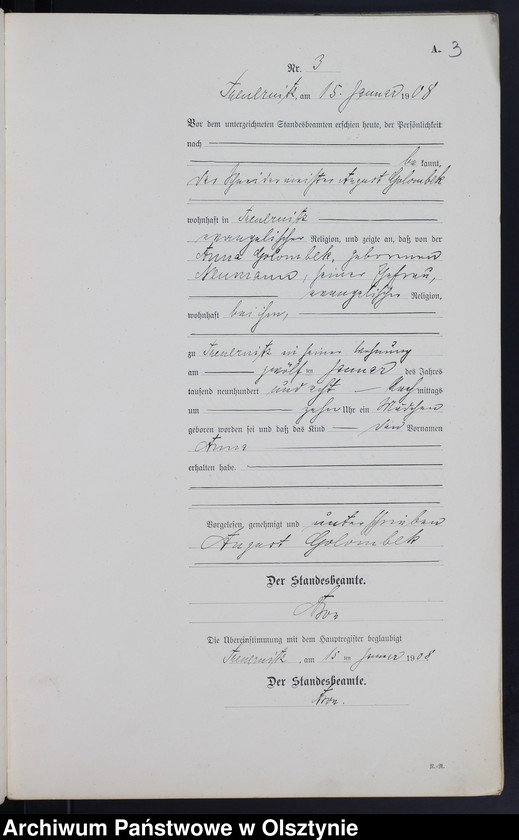 A. 3
Nr. 3
am 15. Januar 1908
Vor dem unterzeichneten Standesbeamten erschien heute, der Persönlichkeit
nach
be kannt,
der Schneidermeister August Golombek
wohnhaft in
evangelischer Religion, und zeigte an, daß von der
Anna Golombek, geborenen
Neumann, seiner Ehefrau,
evangelischer Religion,
wohnhaft bei ihm,
zu in seiner Wohnung
am zwölften Januar des Jahres
tausend neunhundert und acht Nach mittags
um zehn Uhr ein Mädchen
geboren worden sei und daß das Kind den Vornamen
Anna
erhalten habe.
Vorgelesen, genehmigt und unterschrieben
August Golombek
Der Standesbeamte.
Die Übereinstimmung mit dem Hauptregister beglaubigt
am 15 ten Januar 1908
Der Standesbeamte.
Archiwum Państwowe w Olsztynie